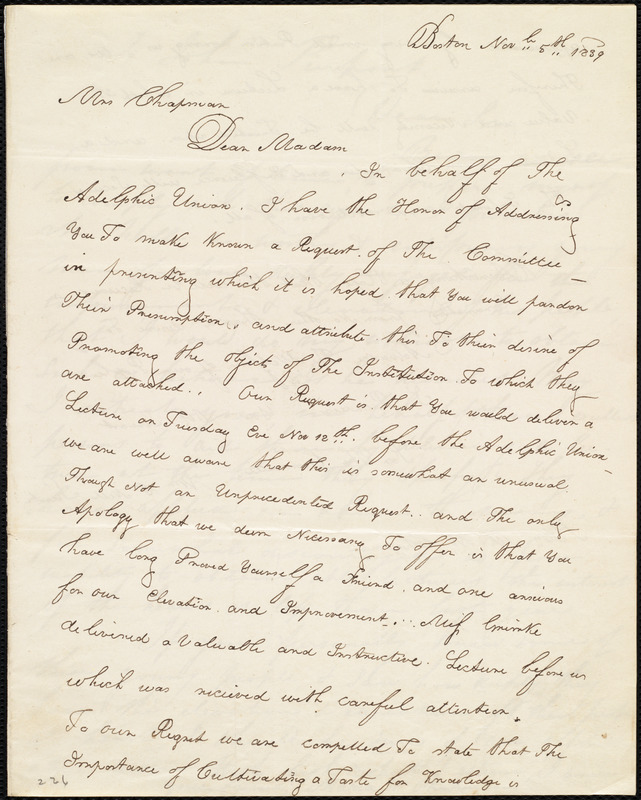 Boston Novbr 5th 1839
Mrs Chapman
Dear Madam
. In behalf of The
Adelphic Union. I have the Honor of Addressing
You To make Known a Request. of The Committee
in presenting which it is hoped that You will pardon
Their Presumption, and attribute this To their desire of
Promoting the objects of The Institution To which they
are attached., Our Request is that You would deliver a
Lecture on Tuesday Eve Nov 12th. before the Adelphic Union
we are well aware that this is somewhat an unusual
Though Not an Unprecedented Request.. and The only
Apology that we deem Necessary To offer is that You
have long Proved Yourself a Friend. and one anxious
for our Elevation. and Improvement... Miss Grimke
delivered a Valuable and Instructive. Lecture before us
which was recieved with careful attention.
To our Regret we are compelled To state that The
Importance of Cultivating a Taste for Knowledge is
226